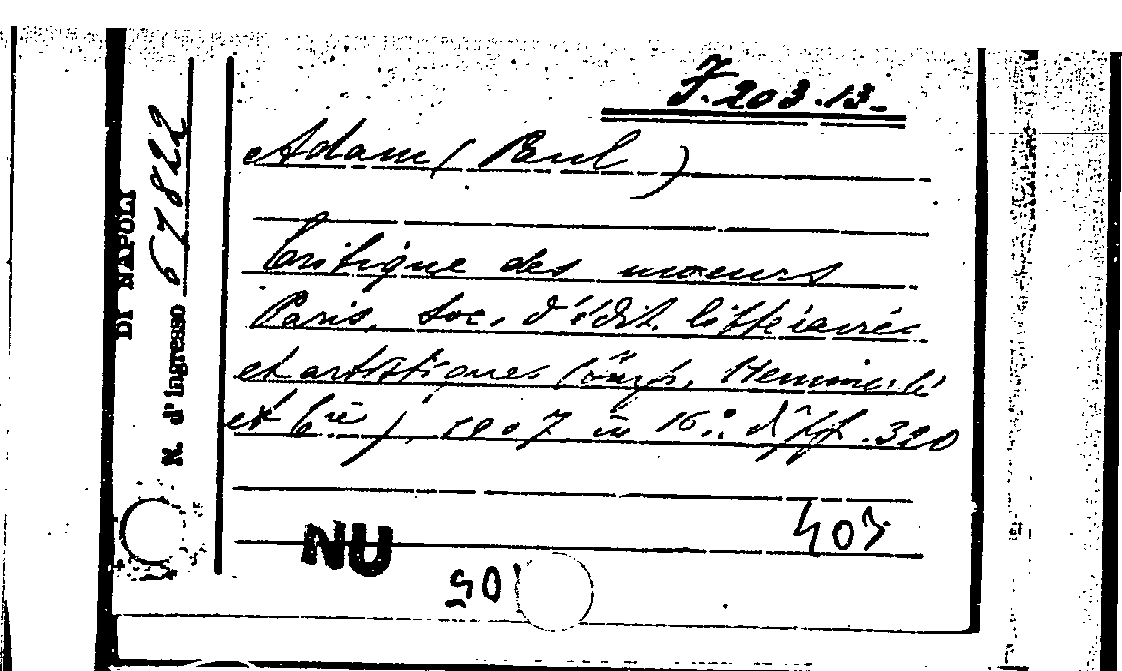 F. 203.13.
Adam (Paul)
Critique des mœurs
Paris, Soc. d'édit. littéraires
et artistiques (impr.
et Cie), 1907 in 16.: di pp. 320
403
NU
501
DI NAPOLI
N. d'ingresso 67822